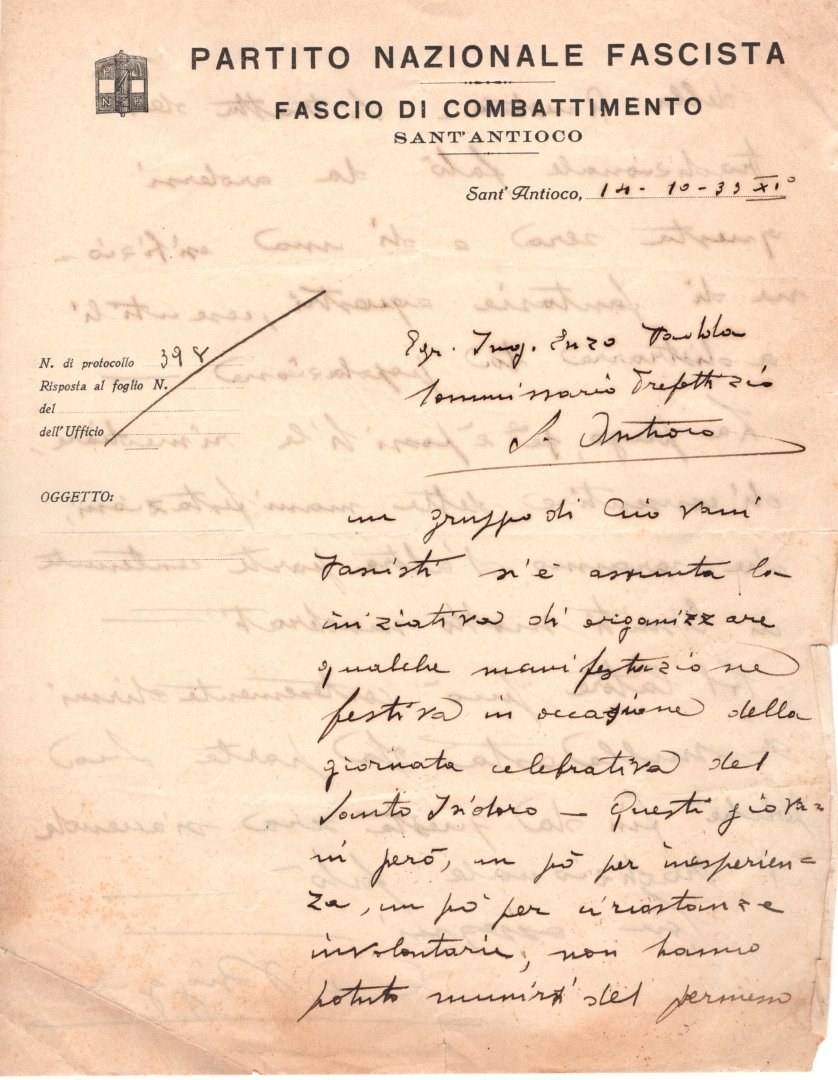 PARTITO NAZIONALE FASCISTA
FASCIO DI COMBATTIMENTO
SANT'ANTIOCO
Sant' Antioco, 14-10-33 XI°
Egr. Ing. Enzo
N. di protocollo 398
Risposta al foglio N.
Commissario Prefettizio
del
dell' Ufficio
S. Antioco
OGGETTO:
un gruppo di Giovani
Fascisti s'è assunta la
iniziativa di organizzare
qualche manifestazione
festiva in occasione della
giornata celebrativa del
Santo Isidoro — Questi giova-
ni però, un pò per inesperien-
za, un pò per circostanze
involontarie, non hanno
potuto munirsi del permesso